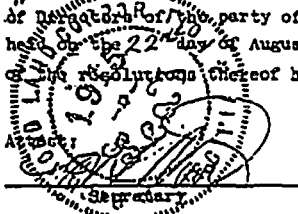 of Directors of the party of
held on the 22 day of Augus
of the resolutions thereof b
Attest:
Secretary